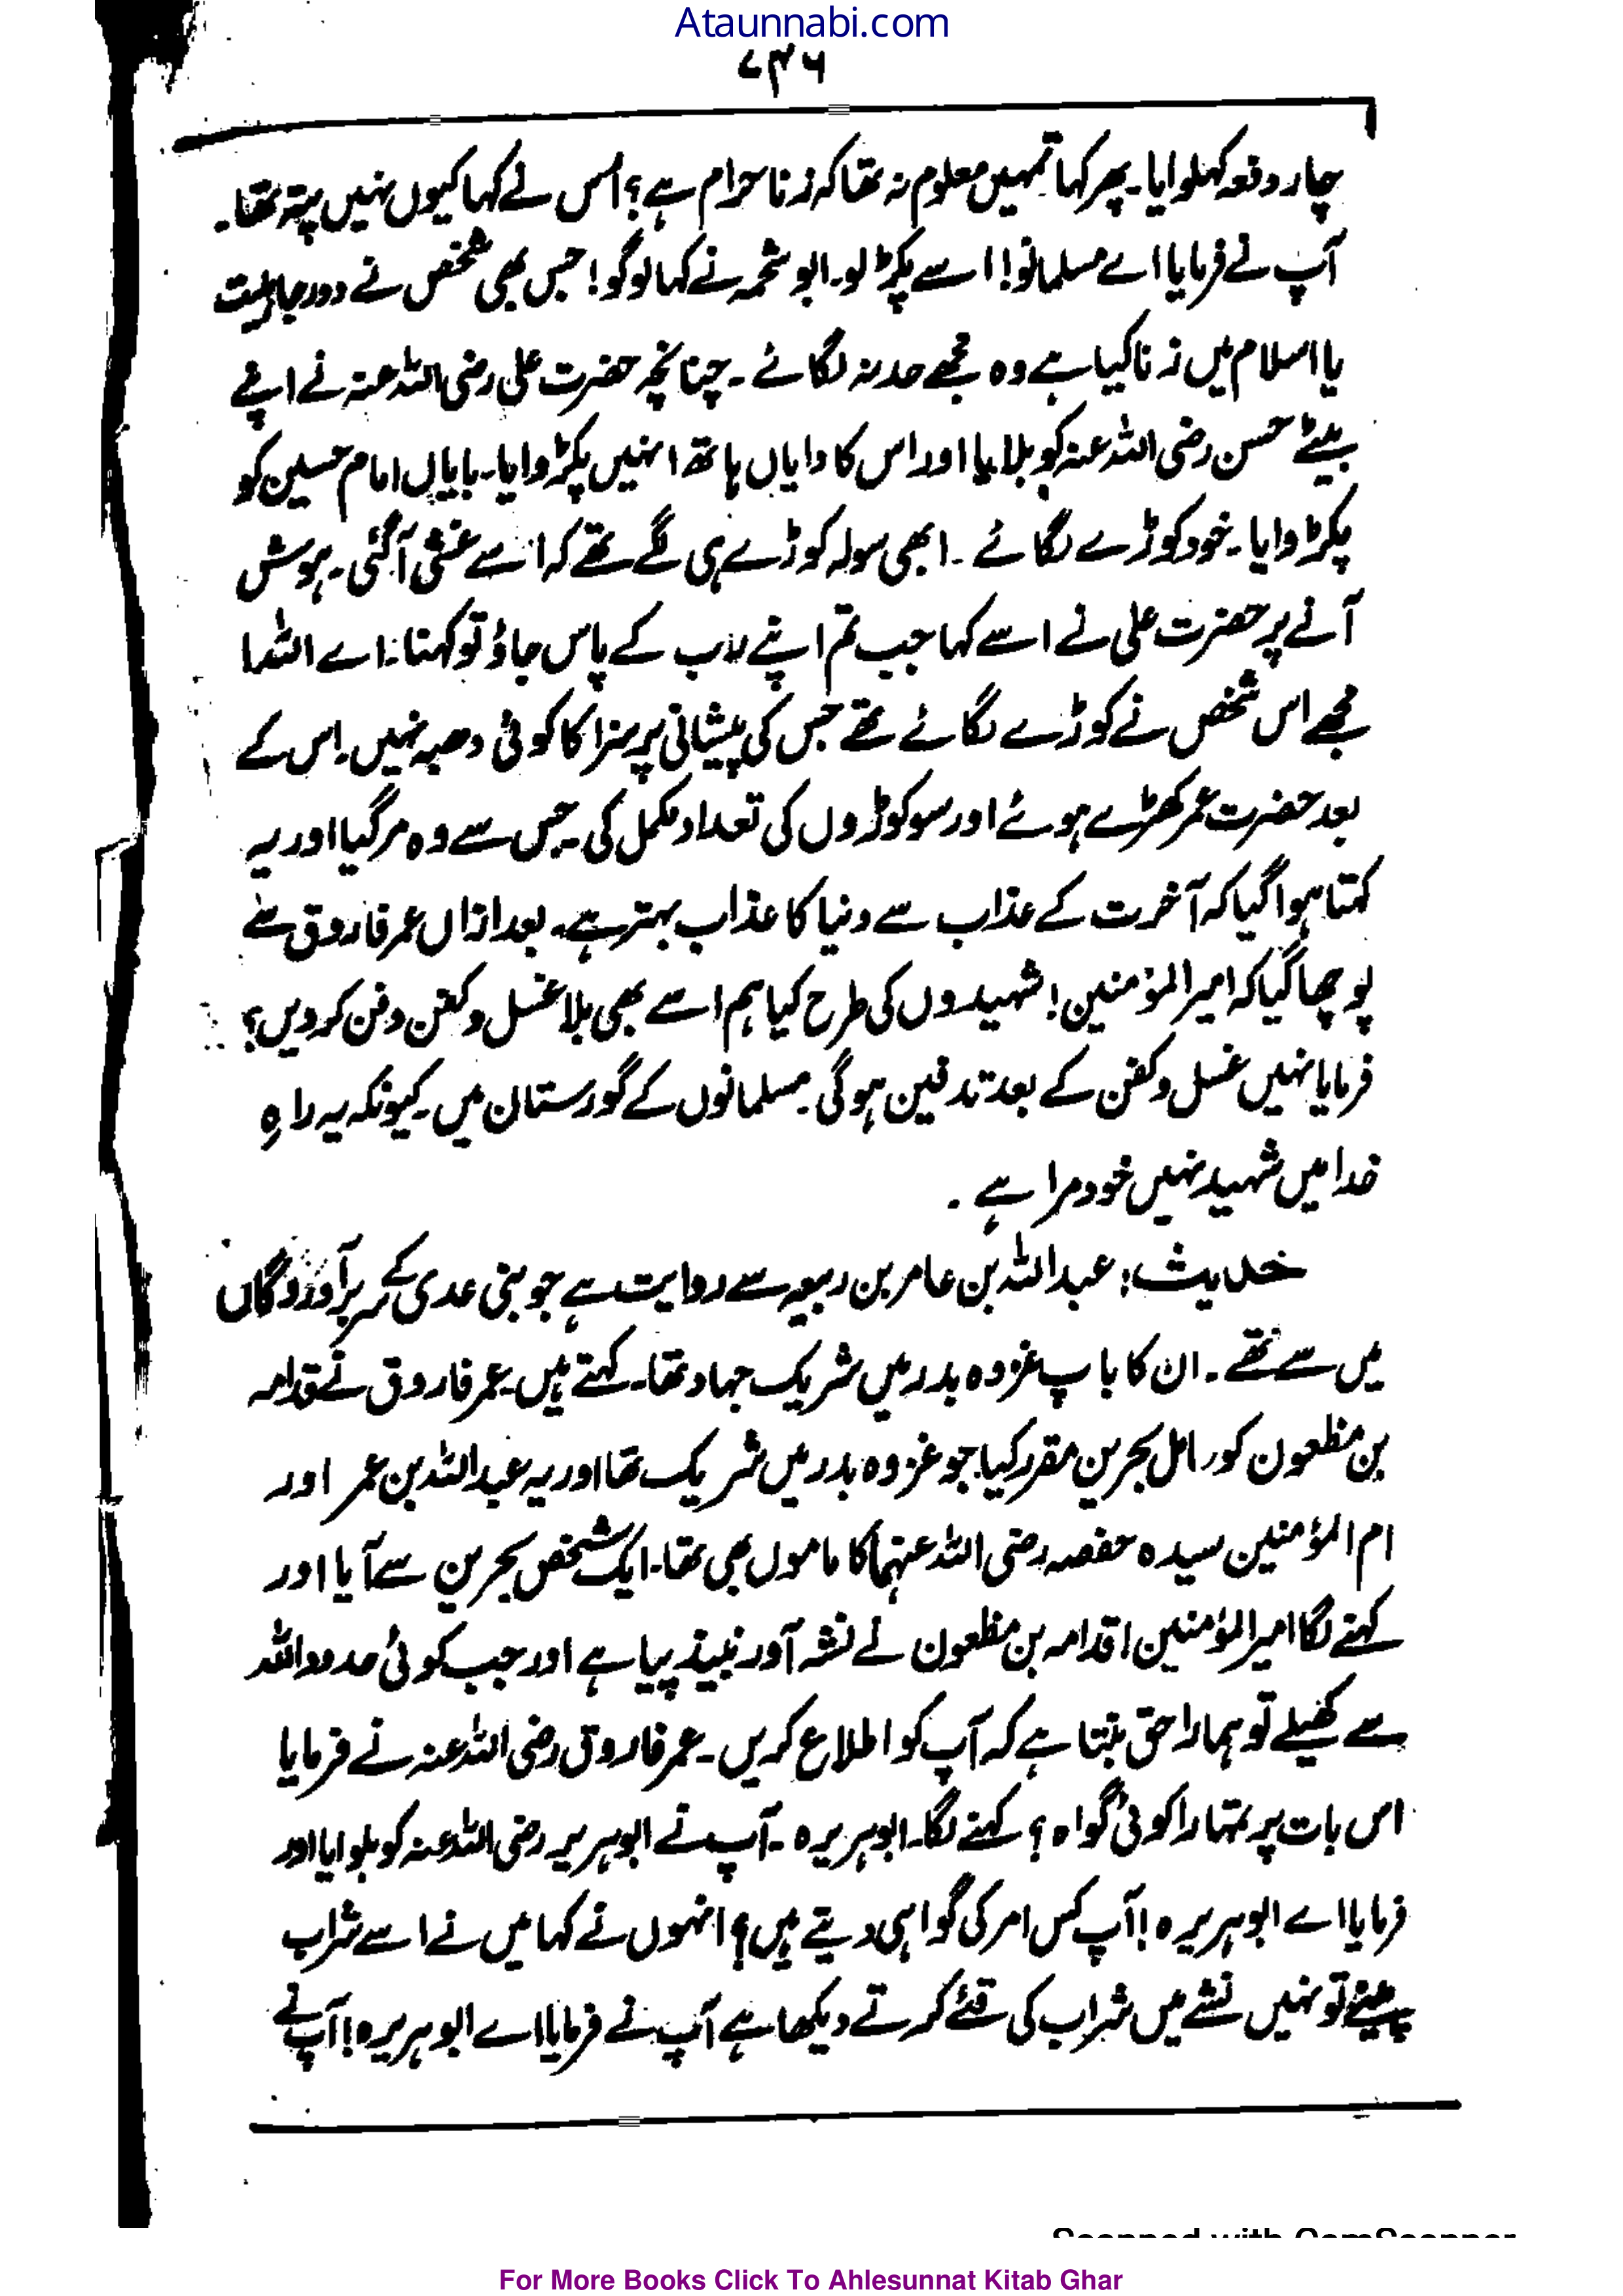 Ataunnabi.com
۷۳۶
چار دفعہ کہلوایا۔ پھر کہا تمہیں معلوم نہ تھا کہ زنا حرام ہے؟ اُس نے کہا کیوں نہیں پتہ تھا۔
آپ نے فرمایا اے مسلمانو! اسے پکڑ لو۔ ابو شحمہ نے کہا لوگو! جس بھی شخص نے دور جاہلیت
یا اسلام میں زنا کیا ہے وہ مجھے حد نہ لگائے۔ چنانچہ حضرت علی رضی اللہ عنہ نے اپنے
بیٹے حسن رضی اللہ عنہ کو بلایا اور اس کا دایاں ہاتھ انہیں پکڑوایا۔ بایاں امام حسین کو
پکڑوایا۔ خود کوڑے لگائے۔ ابھی سولہ کوڑے ہی لگے تھے کہ اسے غشی آ گئی۔ ہوش
آنے پر حضرت علی نے اسے کہا جب تم اپنے رب کے پاس جاؤ تو کہنا: اے اللہ!
مجھے اس شخص نے کوڑے لگائے تھے جس کی پیشانی پر سزا کا کوئی دھبہ نہیں۔ اس کے
بعد حضرت عمر کھڑے ہوئے اور سو کوڑوں کی تعداد مکمل کی۔ جس سے وہ مر گیا اور یہ
کہتا ہوا گیا کہ آخرت کے عذاب سے دنیا کا عذاب بہتر ہے۔ بعد ازاں عمر فاروق سے
پوچھا گیا کہ امیر المؤمنین! شہیدوں کی طرح کیا ہم اسے بھی بلا غسل و کفن دفن کر دیں؟
فرمایا نہیں غسل و کفن کے بعد تدفین ہو گی۔ مسلمانوں کے گورستان میں۔ کیونکہ یہ راہِ
خدا میں شہید نہیں خود مرا ہے۔
حدیث: عبداللہ بن عامر بن ربیعہ سے روایت ہے جو بنی عدی کے برآوردگاں
میں سے تھے۔ ان کا باپ غزوہ بدر میں شریک جہاد تھا۔ کہتے ہیں۔ عمر فاروق نے قدامہ
بن مظعون کو عامل بحرین مقرر کیا جو غزوہ بدر میں شریک تھا اور یہ عبداللہ بن عمر اور
ام المؤمنین سیدہ حفصہ رضی اللہ عنہما کا ماموں بھی تھا۔ ایک شخص بحرین سے آیا اور
کہنے لگا امیر المؤمنین! قدامہ بن مظعون نے نشہ آور نبیذ پیا ہے اور جب کوئی حدود اللہ
سے کھیلے تو ہمارا حق بنتا ہے کہ آپ کو اطلاع کریں۔ عمر فاروق رضی اللہ عنہ نے فرمایا
اس بات پر تمہارا کوئی گواہ؟ کہنے لگا۔ ابوہریرہ۔ آپ نے ابوہریرہ رضی اللہ عنہ کو بلوایا اور
فرمایا اے ابوہریرہ! آپ کس امر کی گواہی دیتے ہیں؟ انہوں نے کہا میں نے اسے شراب
پیتے تو نہیں نشے میں شراب کی قئے کرتے دیکھا ہے آپ نے فرمایا اے ابوہریرہ! آپ نے
Scanned with CamScanner
For More Books Click To Ahlesunnat Kitab Ghar